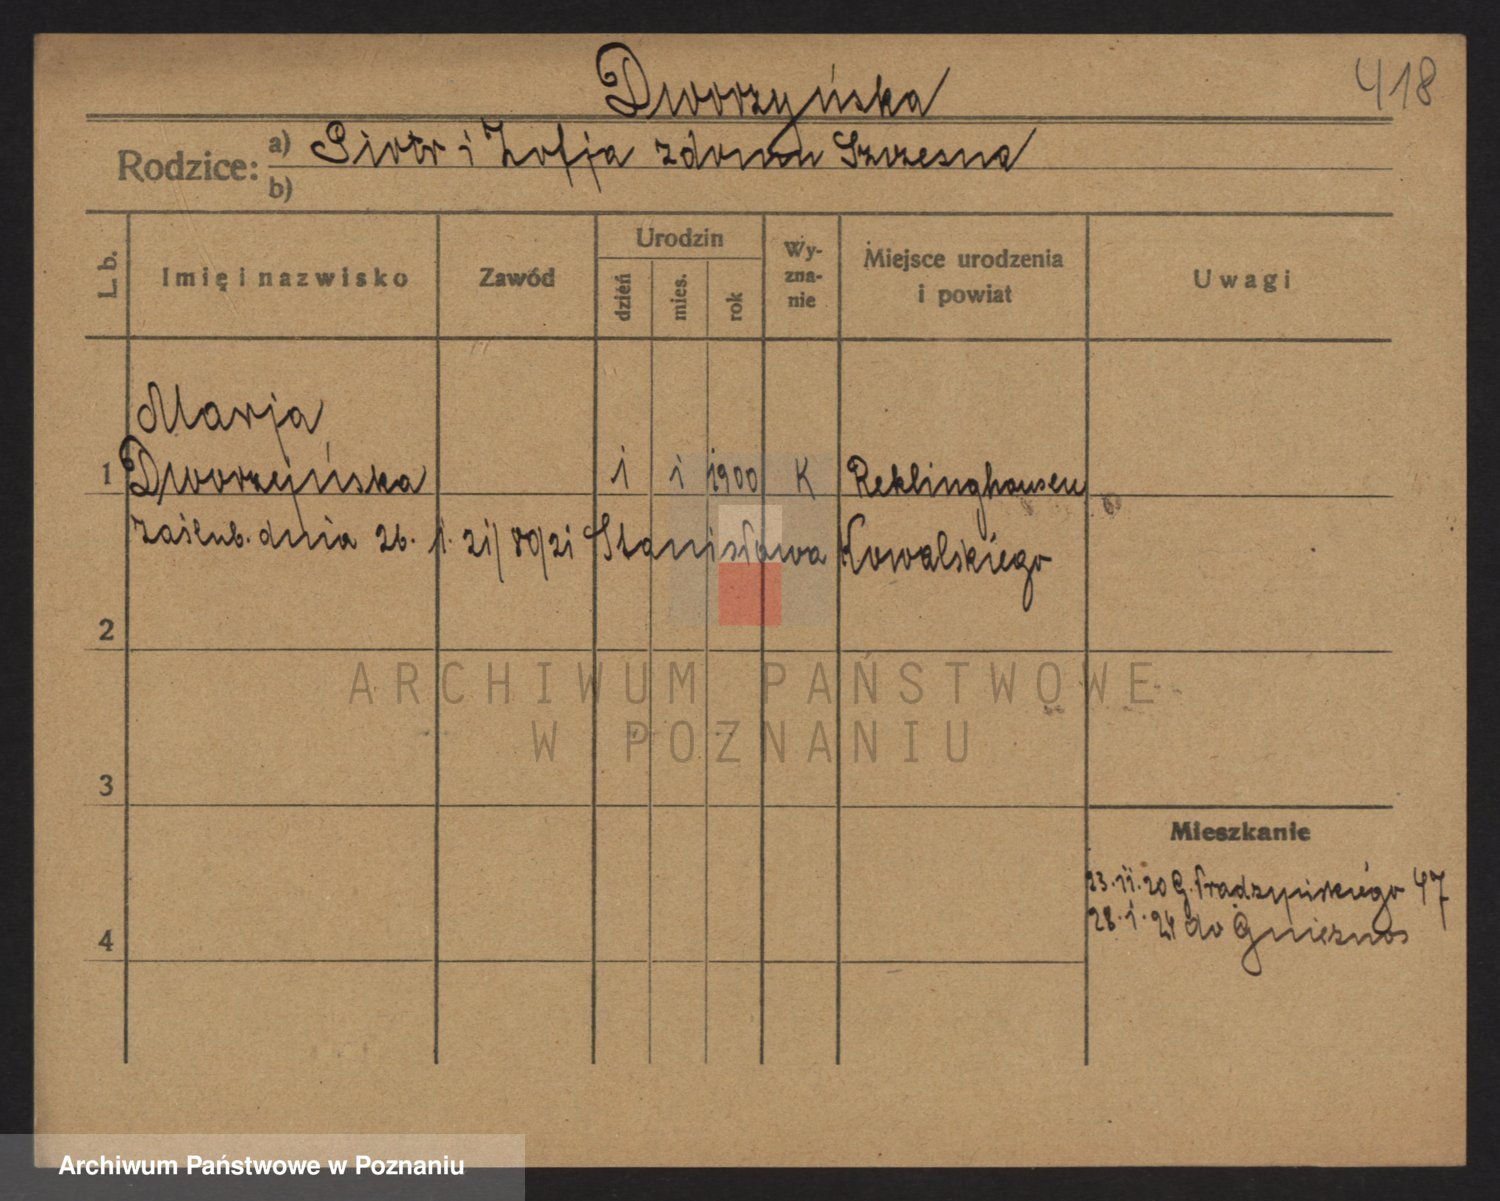 Dworzyńska
418
Rodzice: a) Piotr i Zofja zdomu Szczesna
b)
L. b.
Imię i nazwisko
Zawód
Urodzin
dzień
mies.
rok
Wy-
zna-
nie
Miejsce urodzenia
i powiat
Uwagi
Marja
1 Dworzejńska 1 1 1900 K Reklinghausen
Zaślub. dnia 26. 1. 21/ 80/21 Stanisława Kowalskiego
2
3
4
Mieszkanie
23.11.20 G. Prądzyńskiego 47
28.1.24 do Gniezno
ARCHIWUM PAŃSTWOWE
W POZNANIU
Archiwum Państwowe w Poznaniu